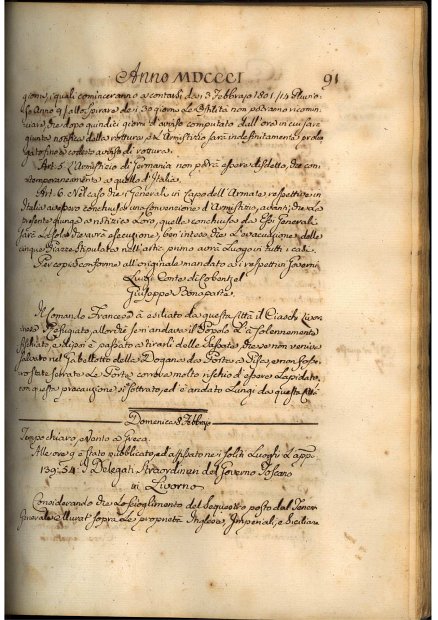 Anno MDCCCI 91
giorni, i quali cominceranno a contarsi da i 3 Febbrajo 1801 /14 Pluvio
so Anno 9/ allo spirare de i 30 giorni Le Ostilità non potranno ricomin
ciare che dopo quindici giorni d'avviso computato dall'ora in cui sarà
giunta notifica della rottura, e L'Armistizio sarà indefinitamente prolun
gato fino a cotesto avviso di rottura.
Art. 5. L'Armistizio di Germania non potrà essere disdetto, che con
temporaneamente a quello d'Italia.
Art. 6. Nel caso che i Generali in Capo dell'Armate respettive in
Italia avessero conchiuso una Convenzione d'Armistizio, avanti che La
presente giunga a notizia Loro, quella conchiusa da Essi Generali
sarà La sola che avrà esecuzione, ben'inteso che L'evacuazione delle
cinque Piazze stipulata nell'arte primo avrà Luogo in tutti i casi.
Per copia conforme all'originale mandato a i respettivi Governi
Luigi Conte di Cobentzel
Giuseppe Bonaparte.
Il Comando Francese à esiliato da questa Città il Ciaschi Livor
nese Refugiato allorchè se n'andava il Popolo La solennemente
fischiato, e di poi è passato a tirarli delle sassate, che se non veniva
salvato nel Gabellotto della Dogana da Porta a Pisa, e non fosse
ro state serrate Le Porte correva molto rischio d'essere Lapidato,
con questa precauzione si sottrasse, ed è andato Lungi da questa Città
Domenica 8. Febbrajo
Tempo chiaro, e Vento a Greco.
Alle ore 9 è stato pubblicato, ed affissato ne i soliti Luoghi L'app.
139: 54 I Delegati Straordinari del Governo Toscano
in Livorno
Considerando che Lo scioglimento del Sequestro posto dal Gener
Generale Murat sopra Le proprietà Inglesi, Imperiali, e Siciliane